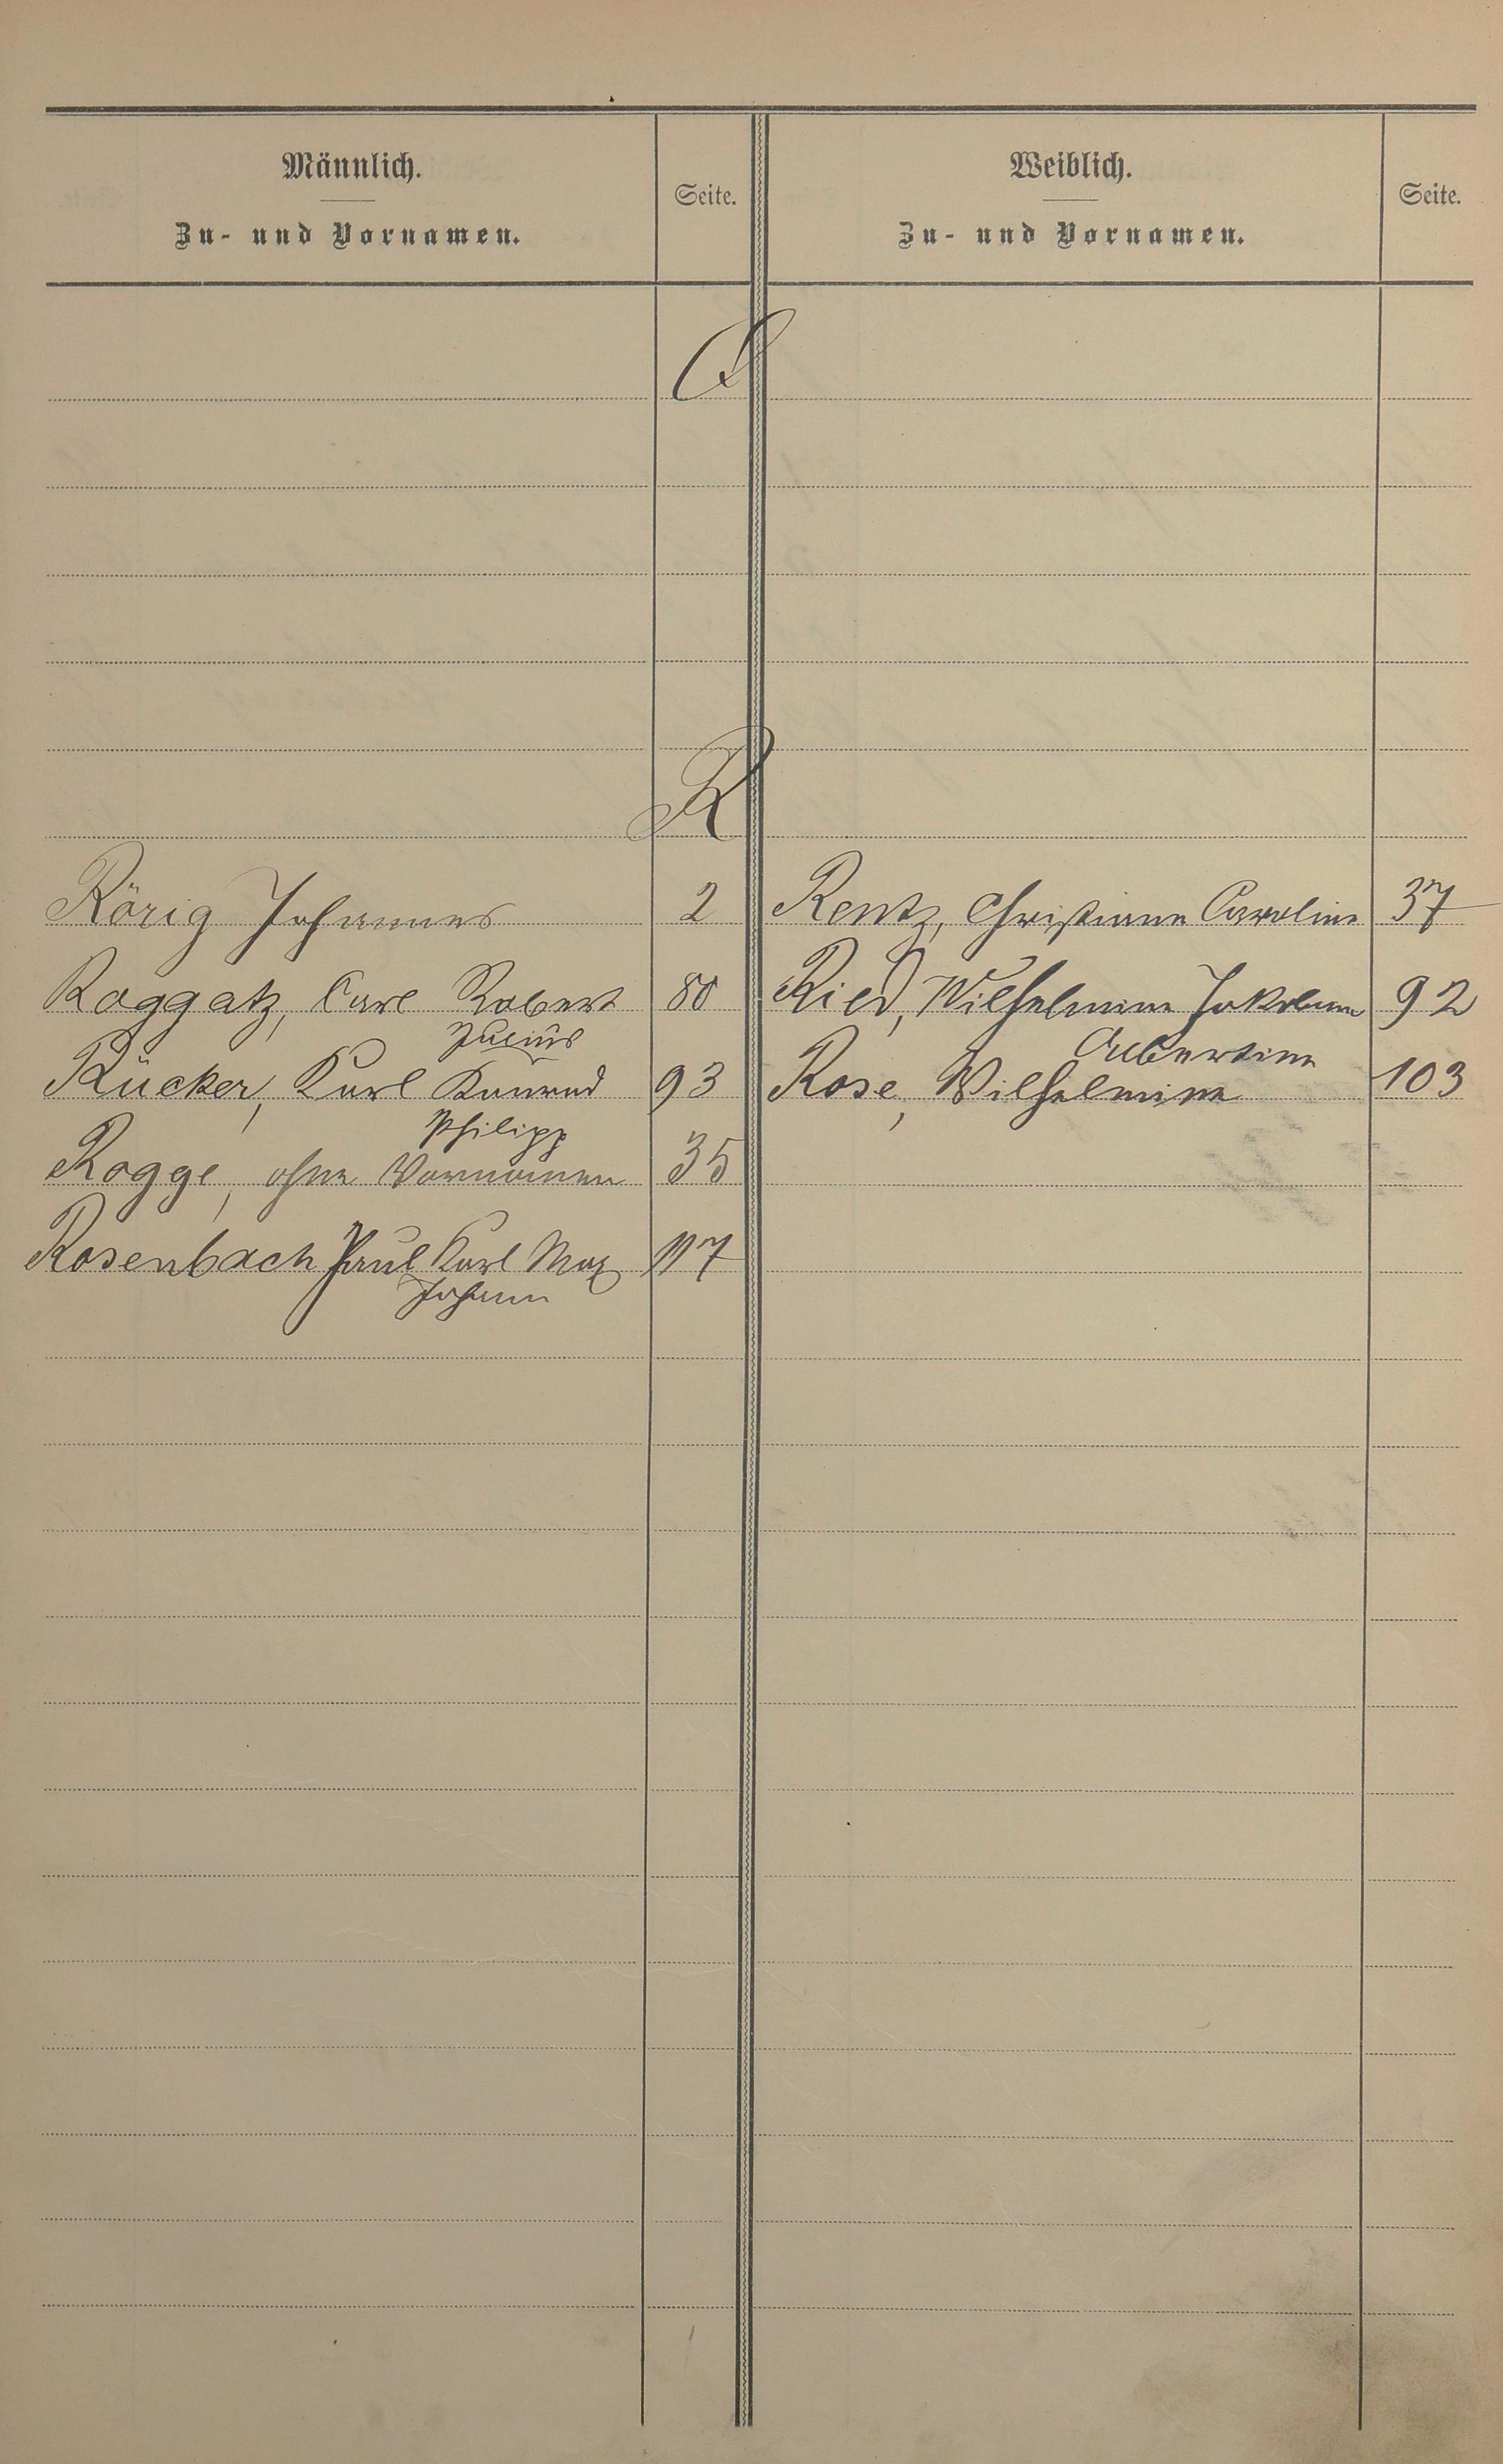 Männlich.
Zu- und Vornamen.
Seite.
Weiblich.
Zu- und Vornamen.
Seite.
Q
R
Rörig Johannes 2
Roggatz, Carl Robert 80
Julius
Rücker, Karl Konrad 93
Philipp
Rogge, ohne Vornamen 35
Rosenbach Paul Karl Max 117
Johann
Rentz, Christiane Caroline 37
Ried, Wilhelmine Jakobine 92
Albertine
Rose, Wilhelmine 103